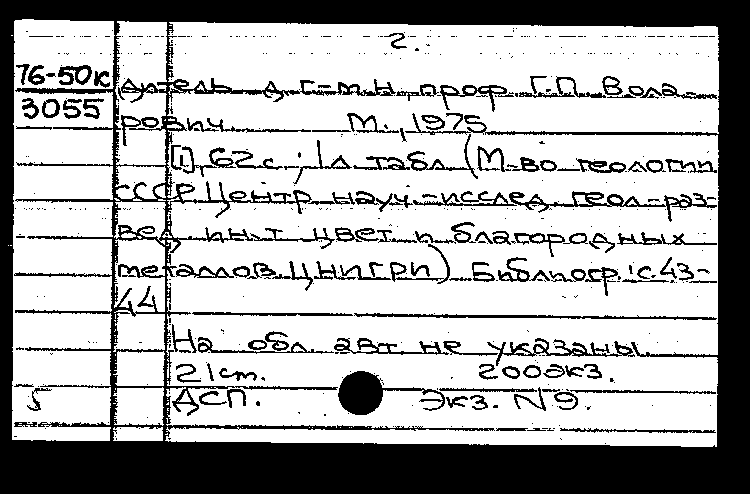 2.
76-50к
3055
дитель д. г.-м. н., проф. Г.П. Вола-
рович. М., 1975
[1], 62 с.; 1 л. табл. (М-во геологии
СССР. Центр. науч.-исслед. геол.-раз-
вед. ин-т цвет. и благородных
металлов. ЦНИГРИ) Библиогр.: с. 43-
44
На обл. авт. не указаны.
21 cm. 200 экз.
5 ДСП. Экз. N 9.